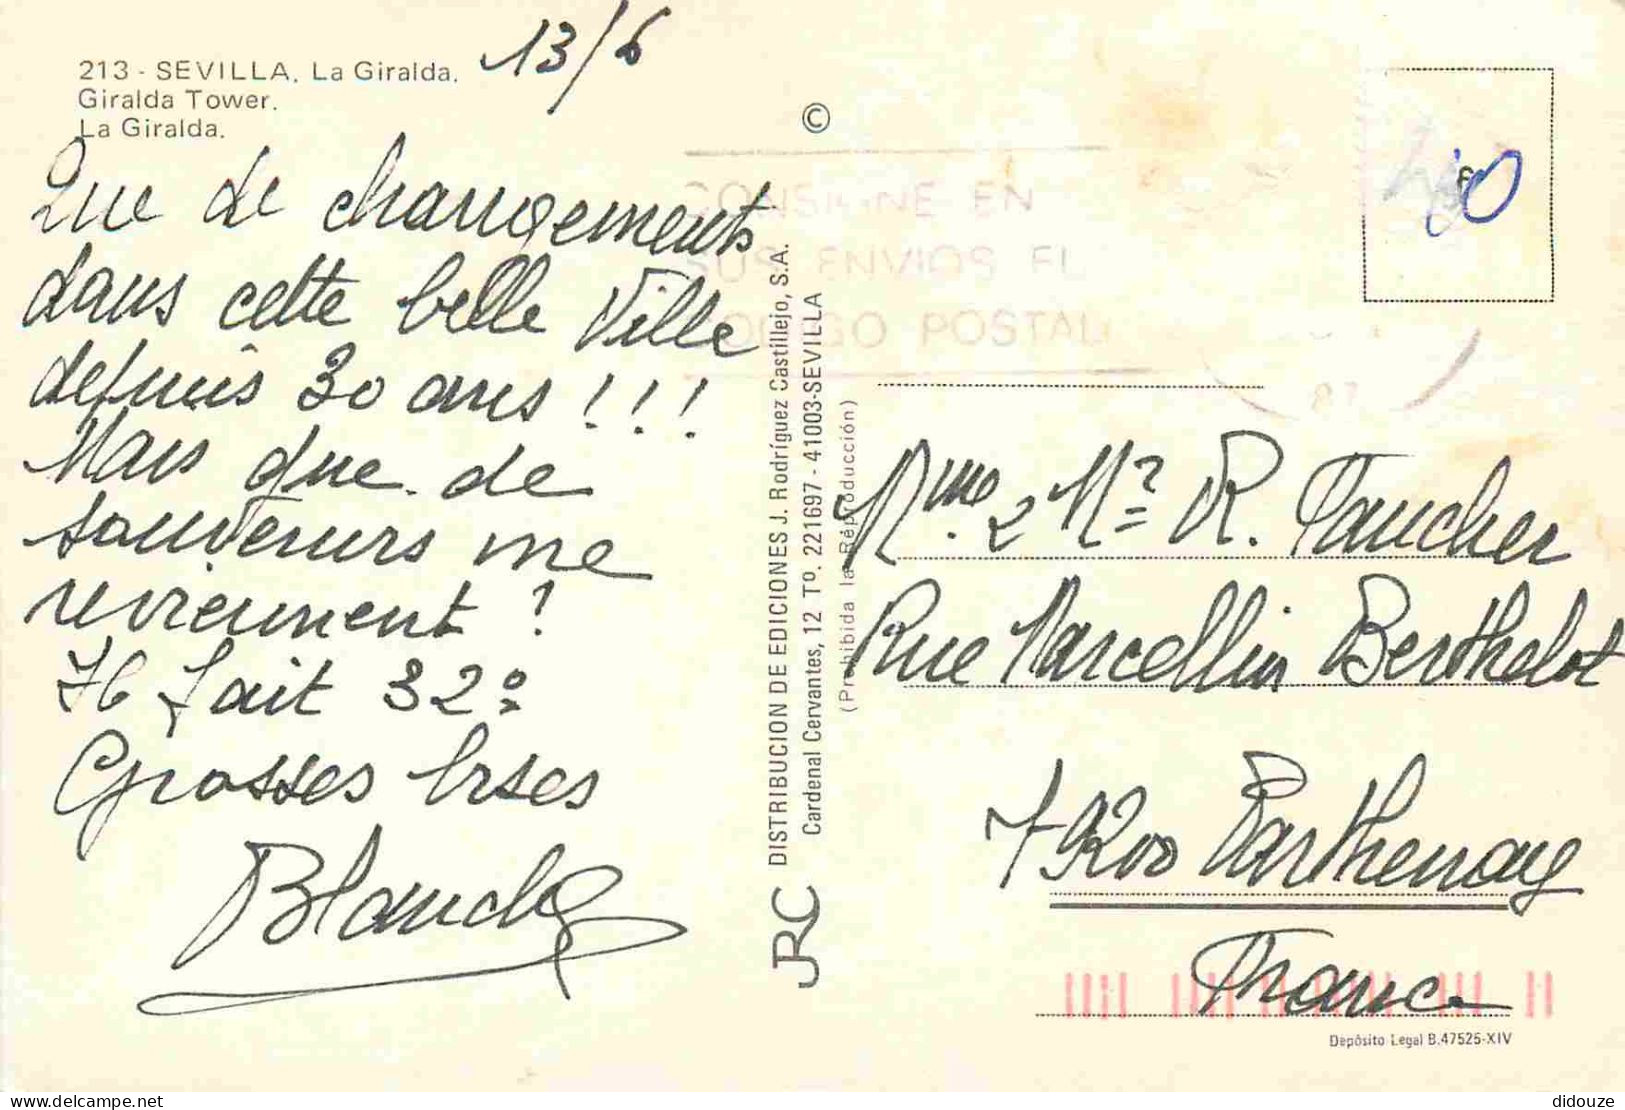 213 - SEVILLA. La Giralda.
Giralda Tower.
La Giralda.
13/6
Que de changements
dans cette belle Ville
depuis 30 ans !!!
Mais que de
souvenirs me
reviennent !
Il fait 32º
Grosses bises
Blanche
©
CONSIGNE EN
SUS ENVIOS EL
CODIGO POSTAL
87
JRC
DISTRIBUCION DE EDICIONES J. Rodríguez Castillejo, S.A.
Cardenal Cervantes, 12 Tº. 221697 - 41003-SEVILLA
(Prohibida la Reproducción)
Mme & Mr R. Faucher
Rue Marcellin Berthelot
79200 Parthenay
France
Depósito Legal B.47525-XIV
delcampe.net
didouze